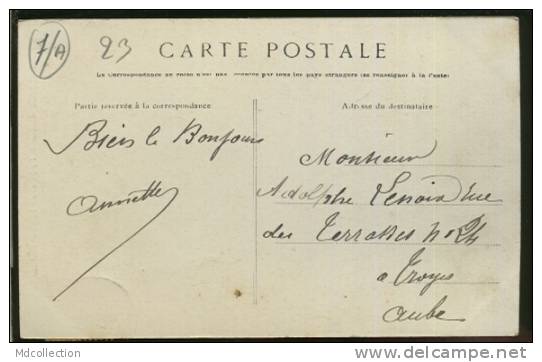 7/A 23
CARTE POSTALE
La Correspondance au recto n'est pas acceptée par tous les pays étrangers (se renseigner à la Poste)
Partie réservée à la correspondance
Adresse du destinataire
Bien le Bonjour
Annette
Monsieur
Adolphe Lenoir Rue
des Terrasses No 24
a Troyes
Aube
Mdcollection
www.delcampe.net